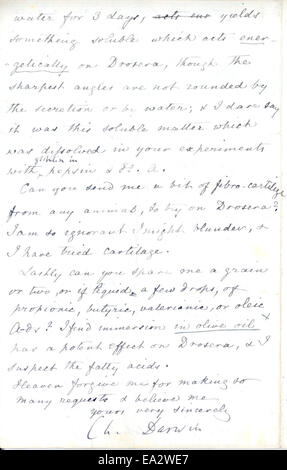 water for 3 days, acts ene yields
something soluble which acts ener-
getically on Drosera, though the
sharpest angles are not rounded by
the secretion or by water; & I dare say
it was this soluble matter which
was dissolved in your experiments
gelatin in
with pepsin & H. A.
Can you send me a bit of fibro-cartilage
from any animal, to try on Drosera?
I am so ignorant I might blunder, &
I have tried cartilage.
Lastly can you spare me a grain
or two, or if liquid a few drops, of
propionic, butyric, valerianic, or oleic
Acids? I find immersion in olive oil
has a potent effect on Drosera, & I
suspect the fatty acids.
Heaven forgive me for making so
many requests & believe me
yours very sincerely
Ch. Darwin
alamy
EA2WE7